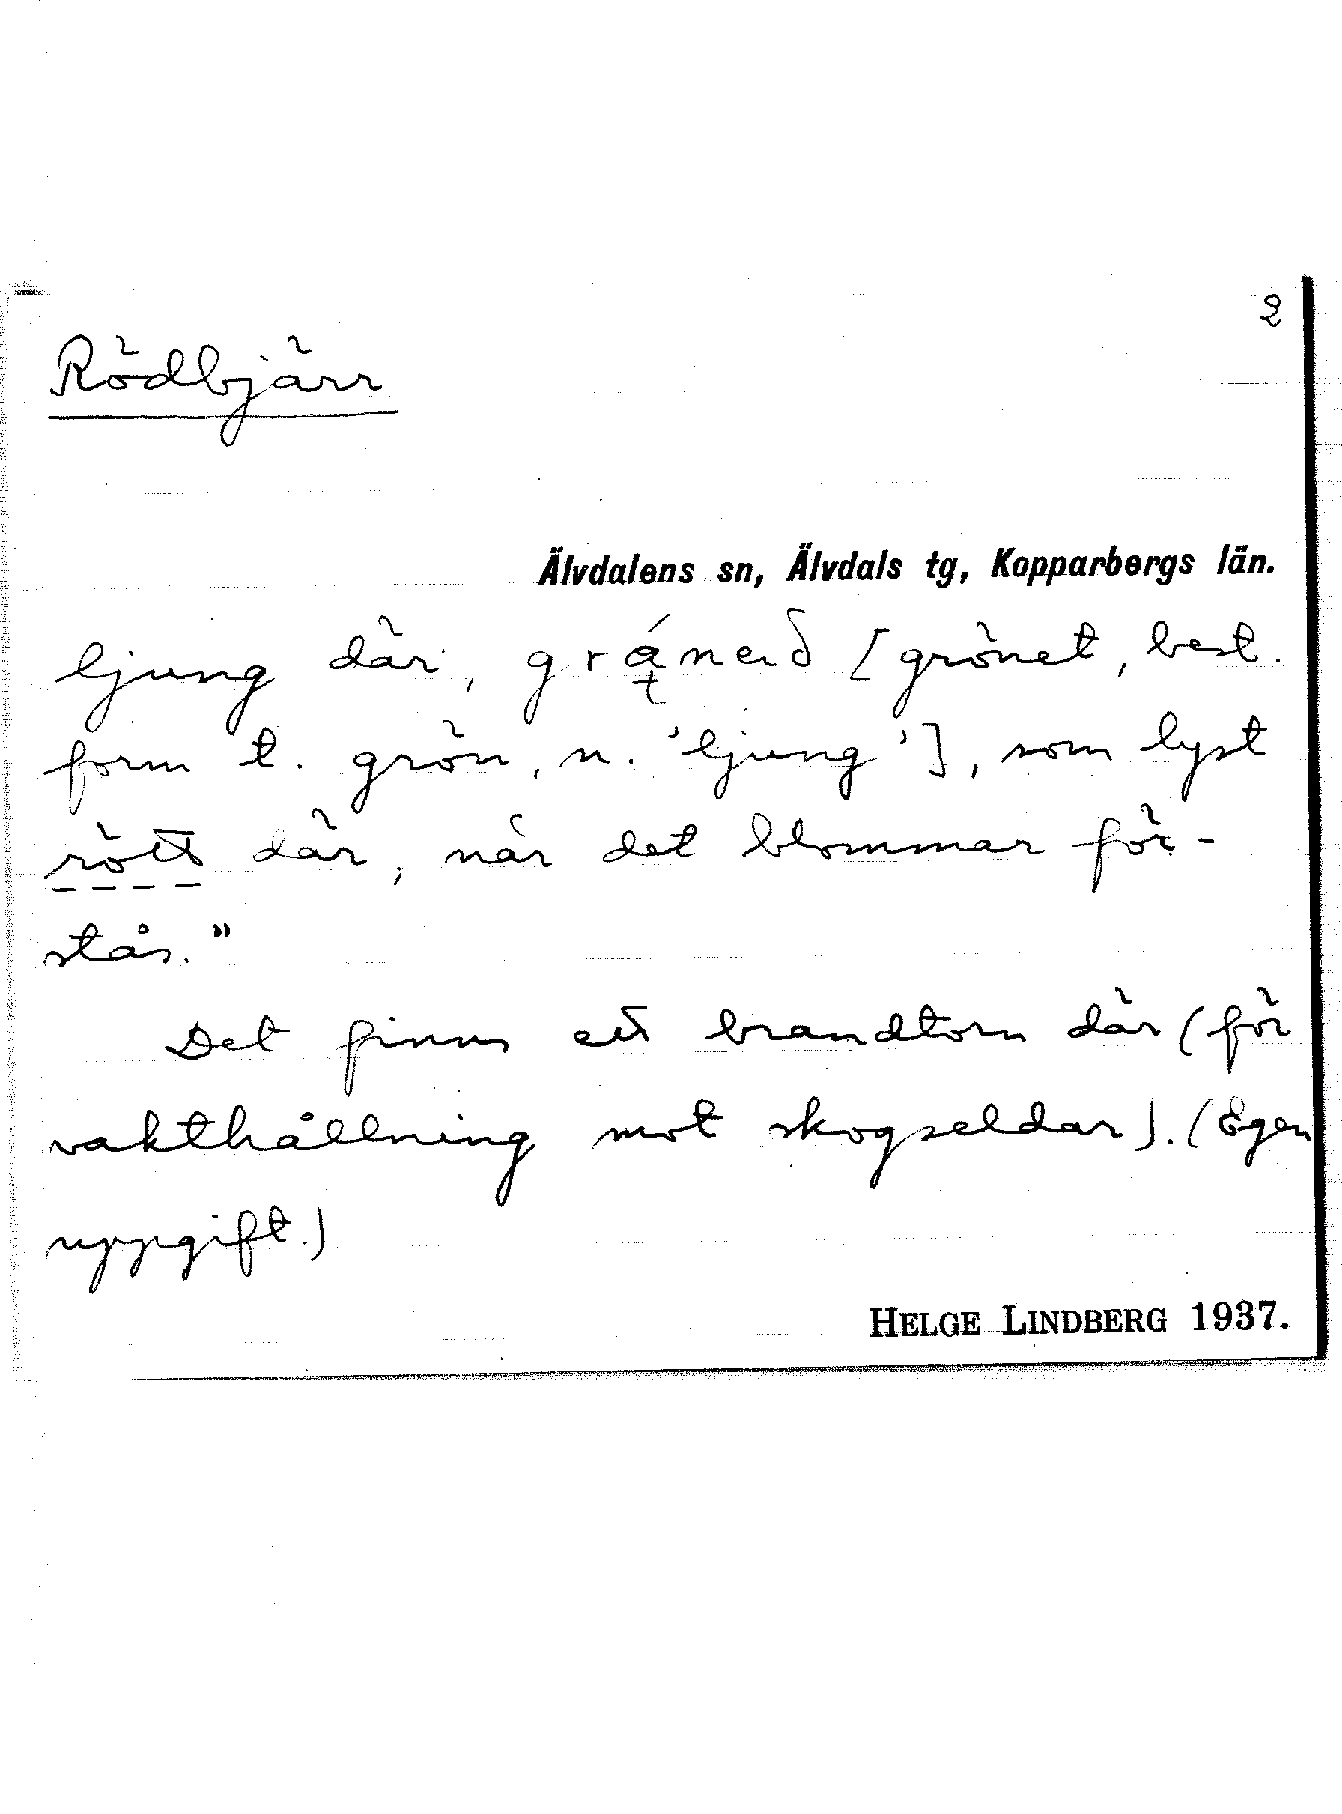 2
Rödbjärr
Älvdalens sn, Älvdals tg, Kopparbergs län.
ljung där, [grönet, best.
form t. grön, n. 'ljung'], som lyst
rött där, när det blommar för-
stås."
Det finns ett brandtorn där (för
vakthållning mot skogseldar). (Egen
uppgift.)
HELGE LINDBERG 1937.